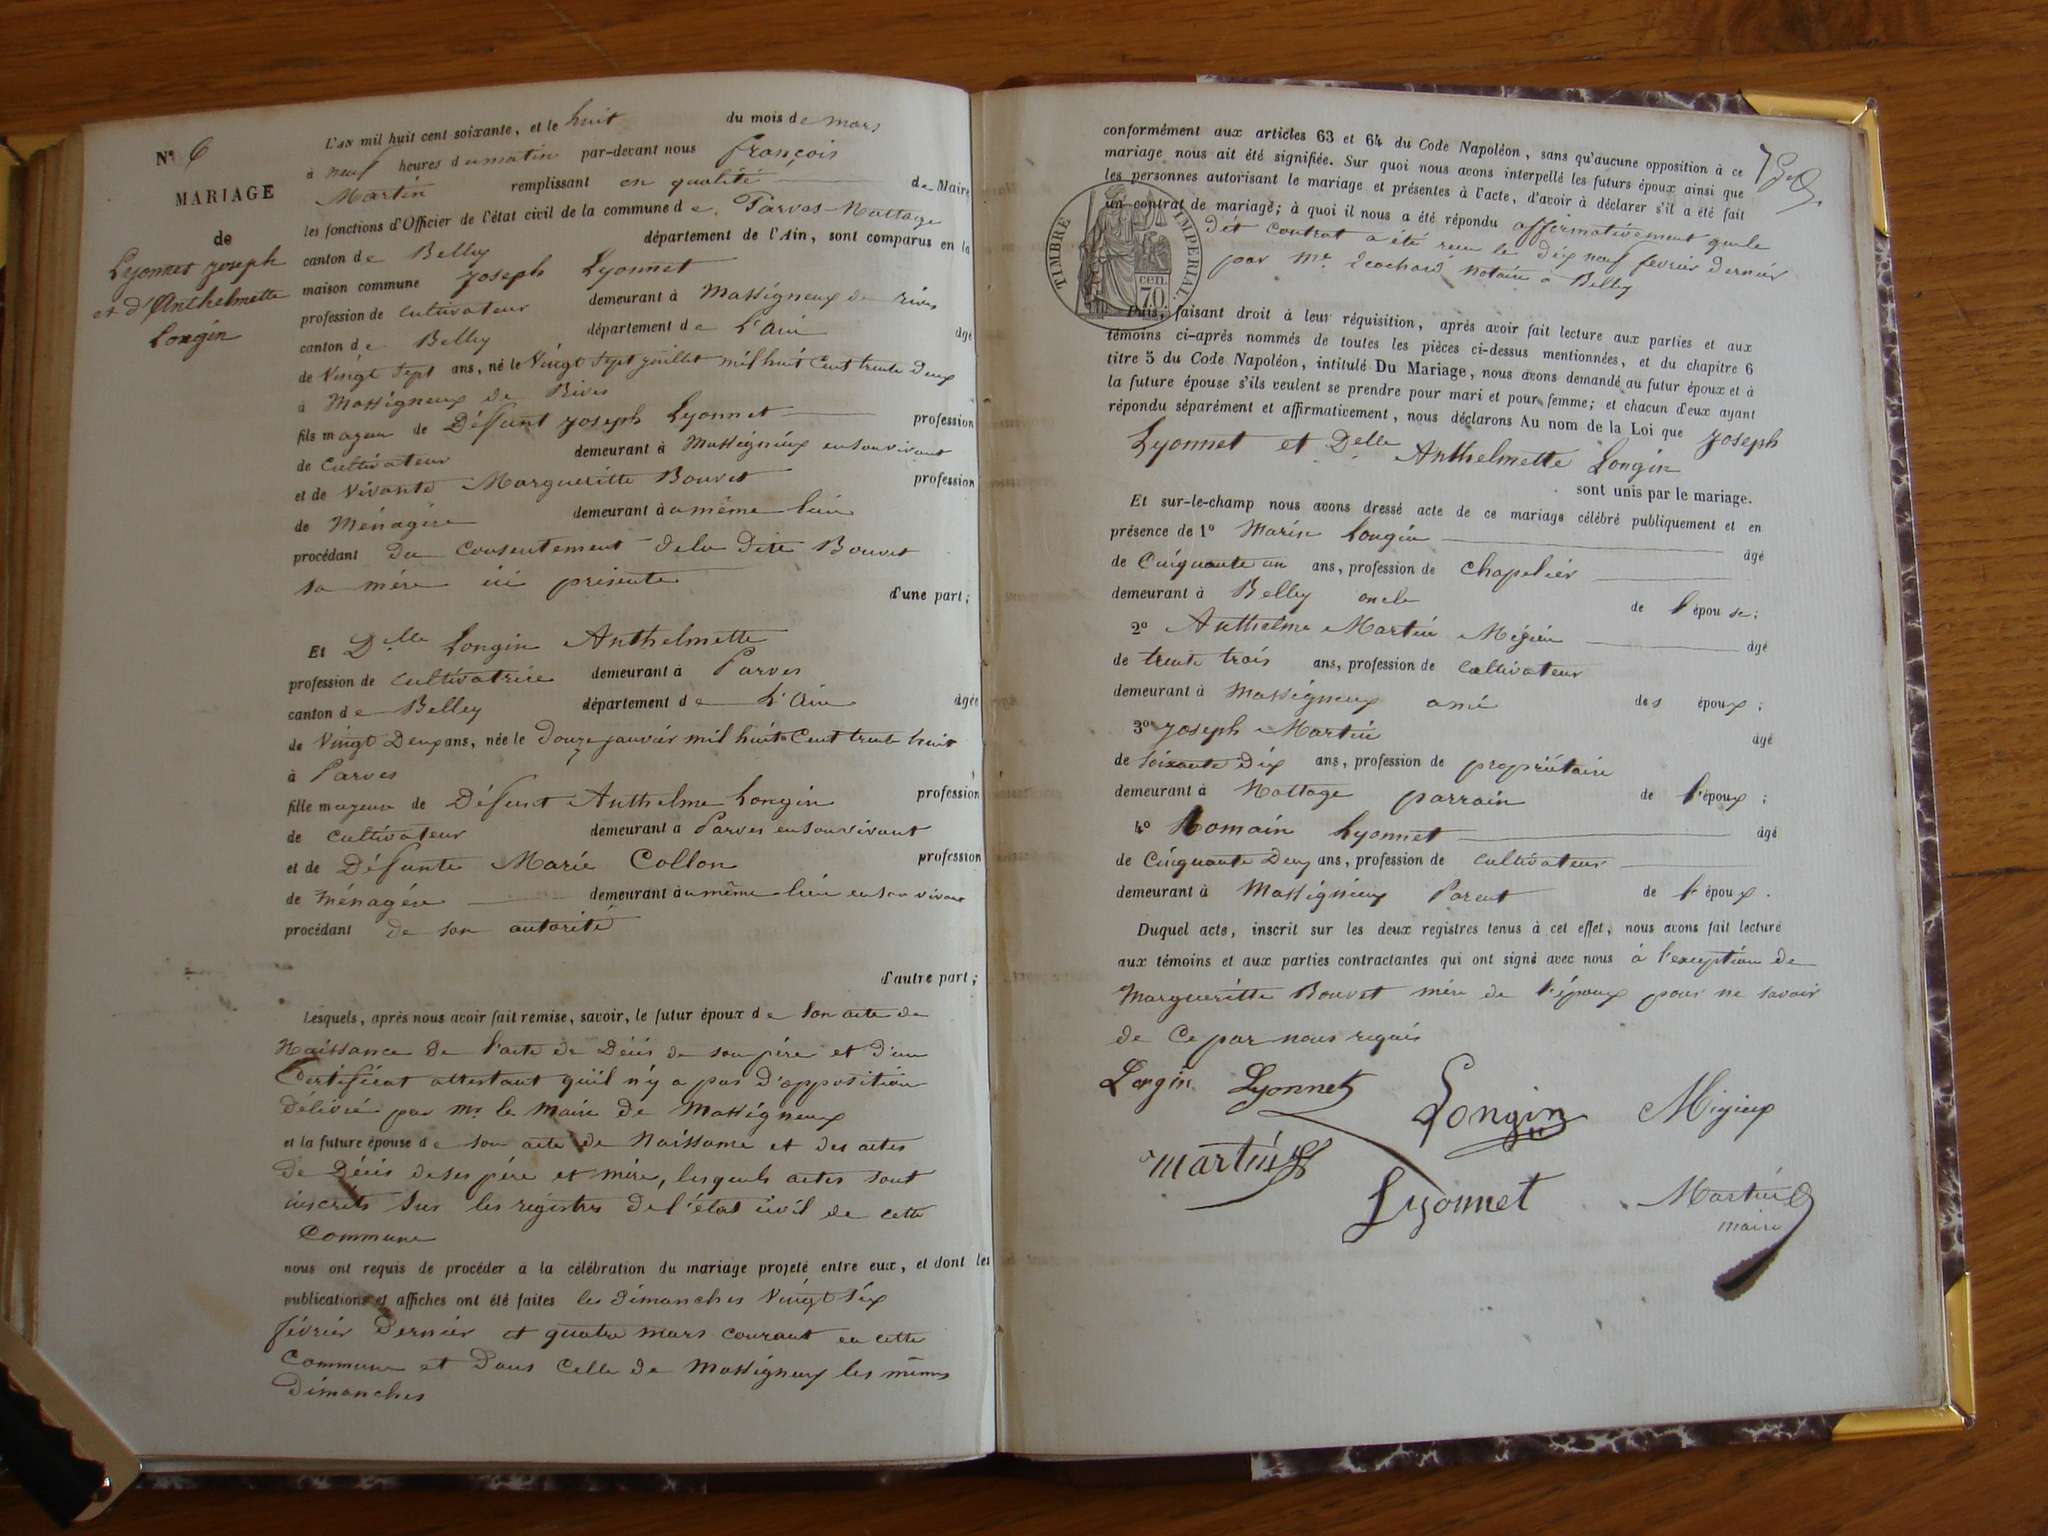 N° 6
MARIAGE
de
Lyonnet Joseph
et d'Anthelmette
Longin
L'AN mil huit cent soixante, et le huit du mois de mars
à neuf heures du matin par-devant nous françois
Martin remplissant en qualité de Maire
les fonctions d'Officier de l'état civil de la commune de Parves-Nattage
canton de Belley département de l'Ain, sont comparus en la
maison commune Joseph Lyonnet
profession de cultivateur demeurant à Massigneux de rives
canton de Belley département de L'Ain âgé
de Vingt Sept ans, né le Vingt Sept juillet mil huit Cent trente Deux
à Massigneux de Rives
fils majeur de Défunt Joseph Lyonnet profession
de Cultivateur demeurant à Massigneux en son vivant
et de Vivante Margueritte Bouvet profession
de Ménagère demeurant au même lieu
procédant du Consentement de la Dite Bouvet
sa mère ici présente
d'une part;
Et Delle Longin Anthelmette
profession de cultivatrice demeurant à Parves
canton de Belley département de L'Ain âgée
de Vingt Deux ans, née le Douze janvier mil huit Cent trente huit
à Parves
fille majeure de Défunt Anthelme Longin profession
de Cultivateur demeurant à Parves en son vivant
et de Défunte Marie Collon profession
de Ménagère demeurant au même lieu en son vivant
procédant de son autorité
d'autre part;
Lesquels, après nous avoir fait remise, savoir, le futur époux de son acte de
Naissance de l'acte de Décès de son père et d'un
Certificat attestant qu'il n'y a pas D'opposition
Délivré par Mr le Maire de Massigneux
et la future épouse de son acte de Naissance et des actes
de Décès de ses père et mère, lesquels actes sont
inscrits sur les registres de l'état civil de cette
Commune
nous ont requis de procéder à la célébration du mariage projeté entre eux, et dont les
publications et affiches ont été faites les Dimanches Vingt Six
février Dernier et quatre mars courant en cette
Commune et Dans Celle de Massigneux les mêmes
Dimanches
conformément aux articles 63 et 64 du Code Napoléon, sans qu'aucune opposition à ce
mariage nous ait été signifiée. Sur quoi nous avons interpellé les futurs époux ainsi que
les personnes autorisant le mariage et présentes à l'acte, d'avoir à déclarer s'il a été fait
un contrat de mariage; à quoi il nous a été répondu affirmativement que le
dit contrat a été recu le dix neuf fevrier dernier
par Me notaire à Belley
TIMBRE IMPÉRIAL
70 cen.
Puis, faisant droit à leur réquisition, après avoir fait lecture aux parties et aux
témoins ci-après nommés de toutes les pièces ci-dessus mentionnées, et du chapitre 6
titre 5 du Code Napoléon, intitulé Du Mariage, nous avons demandé au futur époux et à
la future épouse s'ils veulent se prendre pour mari et pour femme; et chacun d'eux ayant
répondu séparément et affirmativement, nous déclarons Au nom de la Loi que Joseph
Lyonnet et Delle Anthelmette Longin
sont unis par le mariage.
Et sur-le-champ nous avons dressé acte de ce mariage célébré publiquement et en
présence de 1° Marin Longin âgé
de Cinquante un ans, profession de Chapelier
demeurant à Belley oncle de l'épouse;
2° Anthelme Martin Mijieu âgé
de trente trois ans, profession de cultivateur
demeurant à Massigneux ami des époux;
3° Joseph Martin âgé
de Soixante Dix ans, profession de propriétaire
demeurant à Nattage parrain de l'époux;
4° Romain Lyonnet âgé
de Cinquante Deux ans, profession de cultivateur
demeurant à Massigneux Parent de l'époux.
Duquel acte, inscrit sur les deux registres tenus à cet effet, nous avons fait lecture
aux témoins et aux parties contractantes qui ont signé avec nous à l'exception de
Margueritte Bouvet mère de l'époux pour ne savoir
de Ce par nous requis
Longin Lyonnet Longin Mijieux
Martin Lyonnet Martin
maire